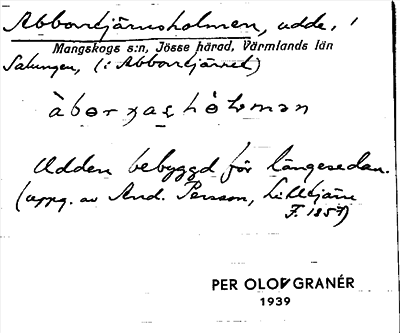 Abborrtjärnsholmen, udde, i
Mangskogs s:n, Jösse härad, Värmlands län
Salungen, (i Abborrtjärnet)
Udden bebyggd för längesedan.
(uppg. av And. Persson, Lilltjärn
F. 1857)
PER OLOV GRANÉR
1939